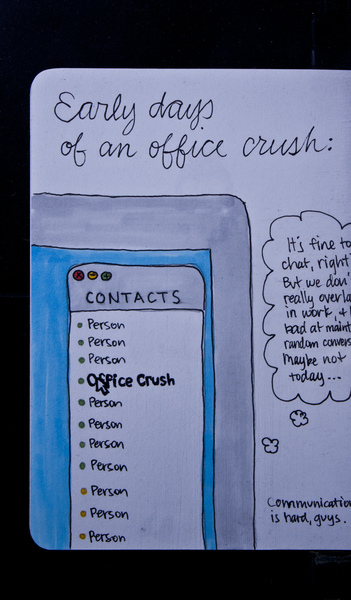 Early days
of an office crush:
CONTACTS
Person
Person
Person
Office Crush
Person
Person
Person
Person
Person
Person
Person
It's fine to
chat, right
But we don'
really overla
in work, +
bad at maint
random convers
Maybe not
today...
Communication
is hard, guys.